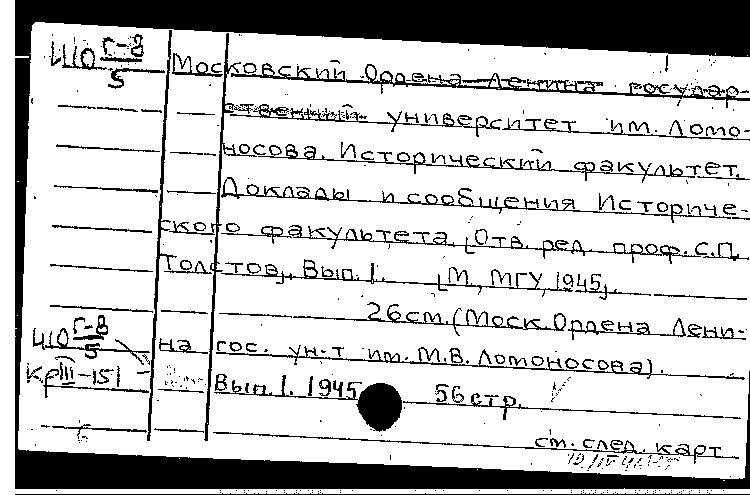 Ш10 Г-8/5
Московский Ордена Ленина государ-
ственный университет им. Ломо-
носова. Исторический факультет.
Доклады и сообщения Историче-
ского факультета. [Отв. ред. проф. С.П.
Толстов]. Вып. 1. [М., МГУ, 1945].
26 см. (Моск. Ордена Лени-
Ш10 Г-8/5
на гос. ун-т им. М.В. Ломоносова).
КрIII-151
Вып. 1. 1945 56 стр.
см. след. карт